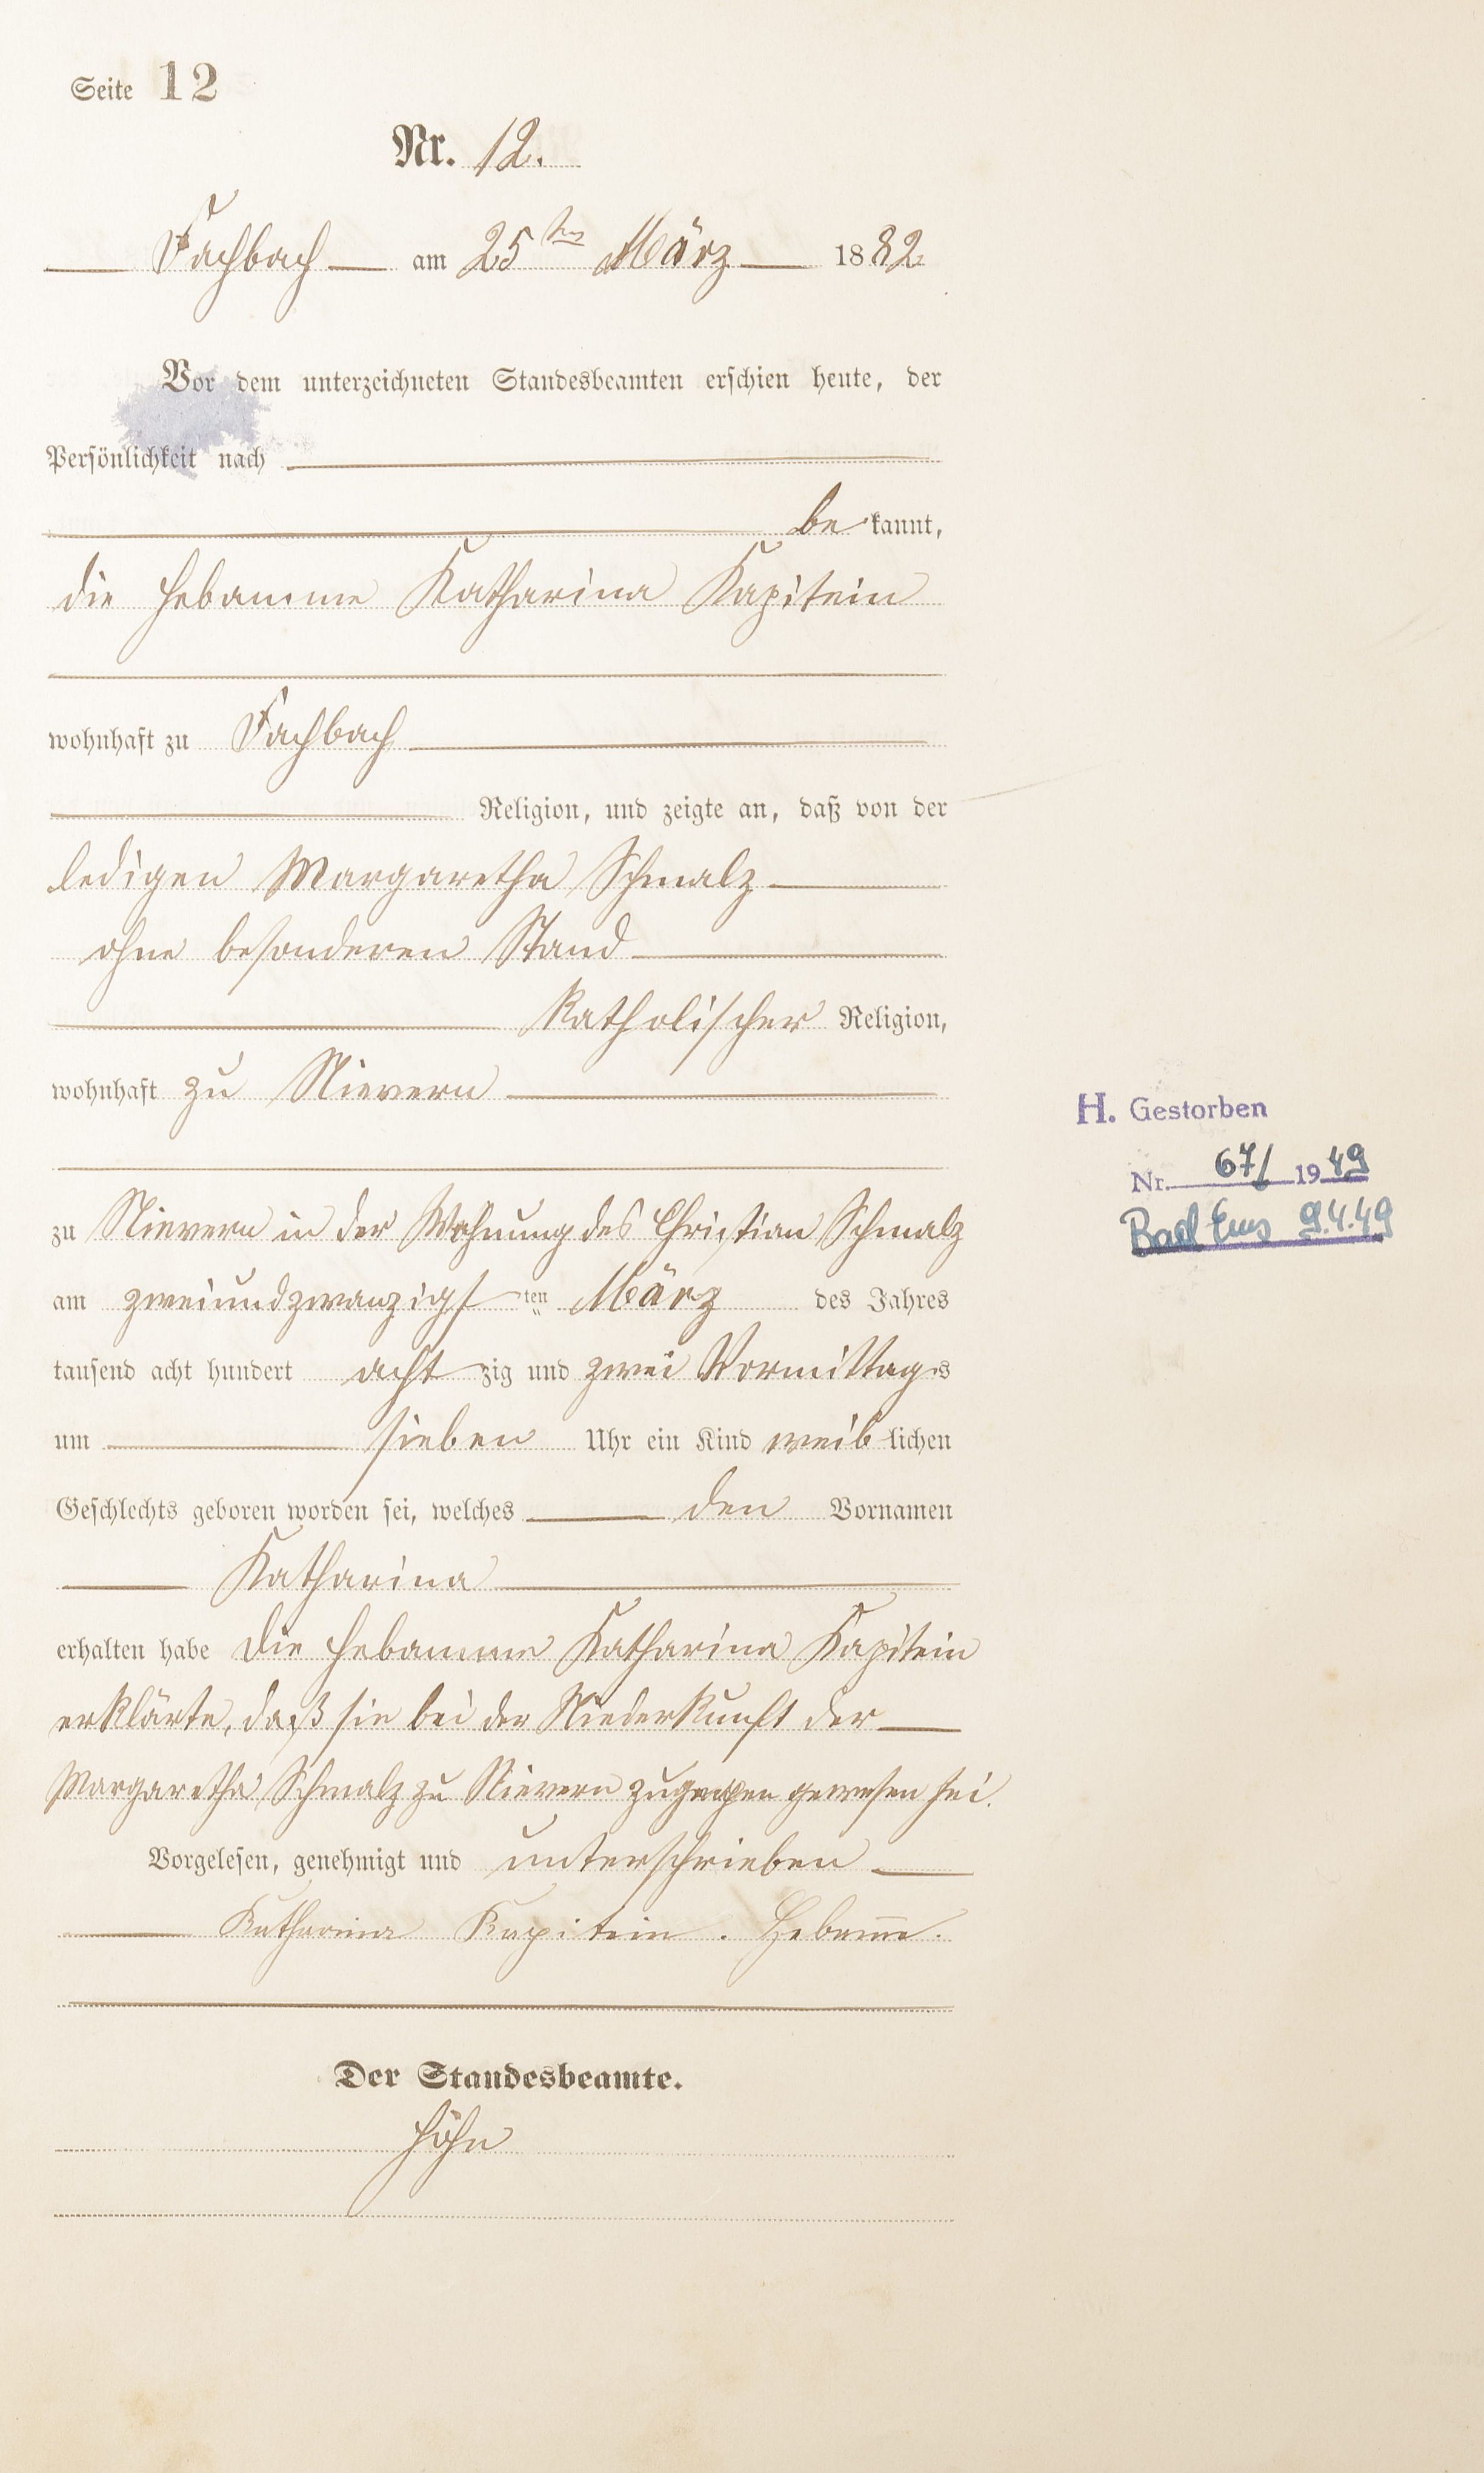 Seite 12
Nr. 12.
Fachbach am 25ten März 1882
Vor dem unterzeichneten Standesbeamten erschien heute, der
Persönlichkeit nach
be kannt,
die Hebamme Katharina Kapitein
wohnhaft zu Fachbach
Religion, und zeigte an, daß von der
ledigen Margaretha Schmalz
ohne besonderen Stand
Katholischer Religion,
wohnhaft zu Nievern
zu Nievern in der Wohnung des Christian Schmalz
am zweiundzwanzigsten März des Jahres
tausend acht hundert acht zig und zwei Vormittags
um sieben Uhr ein Kind weib lichen
Geschlechts geboren worden sei, welches den Vornamen
Katharina
erhalten habe die Hebamme Katharina Kapitein
erklärte, daß sie bei der Niederkunft der
Margaretha Schmalz zu Nievern zugegen gewesen sei.
Vorgelesen, genehmigt und unterschrieben
Katharina Kapitein. Hebam̅e.
Der Standesbeamte.
Höhn
H. Gestorben
Nr. 67/ 1949
Bad Ems 9.4.49